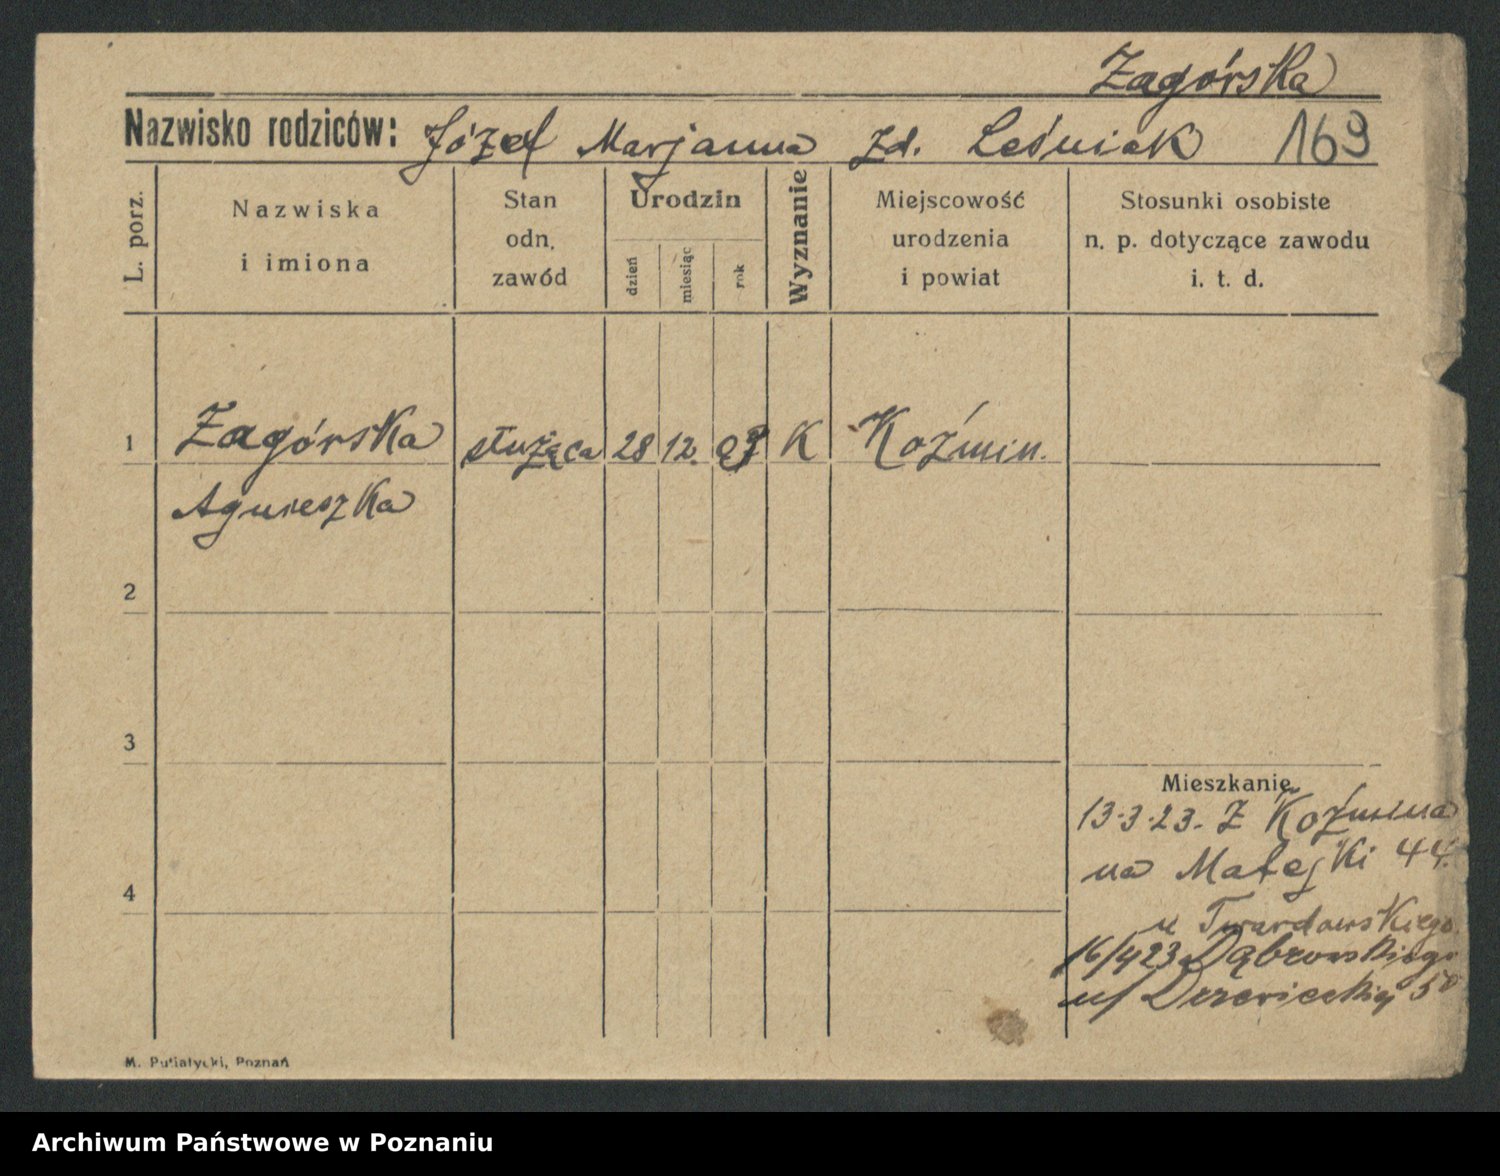 Zagórska
Nazwisko rodziców: Józef Marjanna zd. Leśniak 169
L. porz.
Nazwiska
i imiona
Stan
odn.
zawód
Urodzin
dzień
miesiąc
rok
Wyznanie
Miejscowość
urodzenia
i powiat
Stosunki osobiste
n. p. dotyczące zawodu
i. t. d.
1 Zagórska służąca 28 12. K Koźmin.
Agnieszka
2
3
Mieszkanie
13.3.23. Z Koźmina
na Matejki 44.
4
u Twardowskiego.
16/4 23 Dąbrowskiego
u/ 50
M. Putiatycki, Poznań
Archiwum Państwowe w Poznaniu